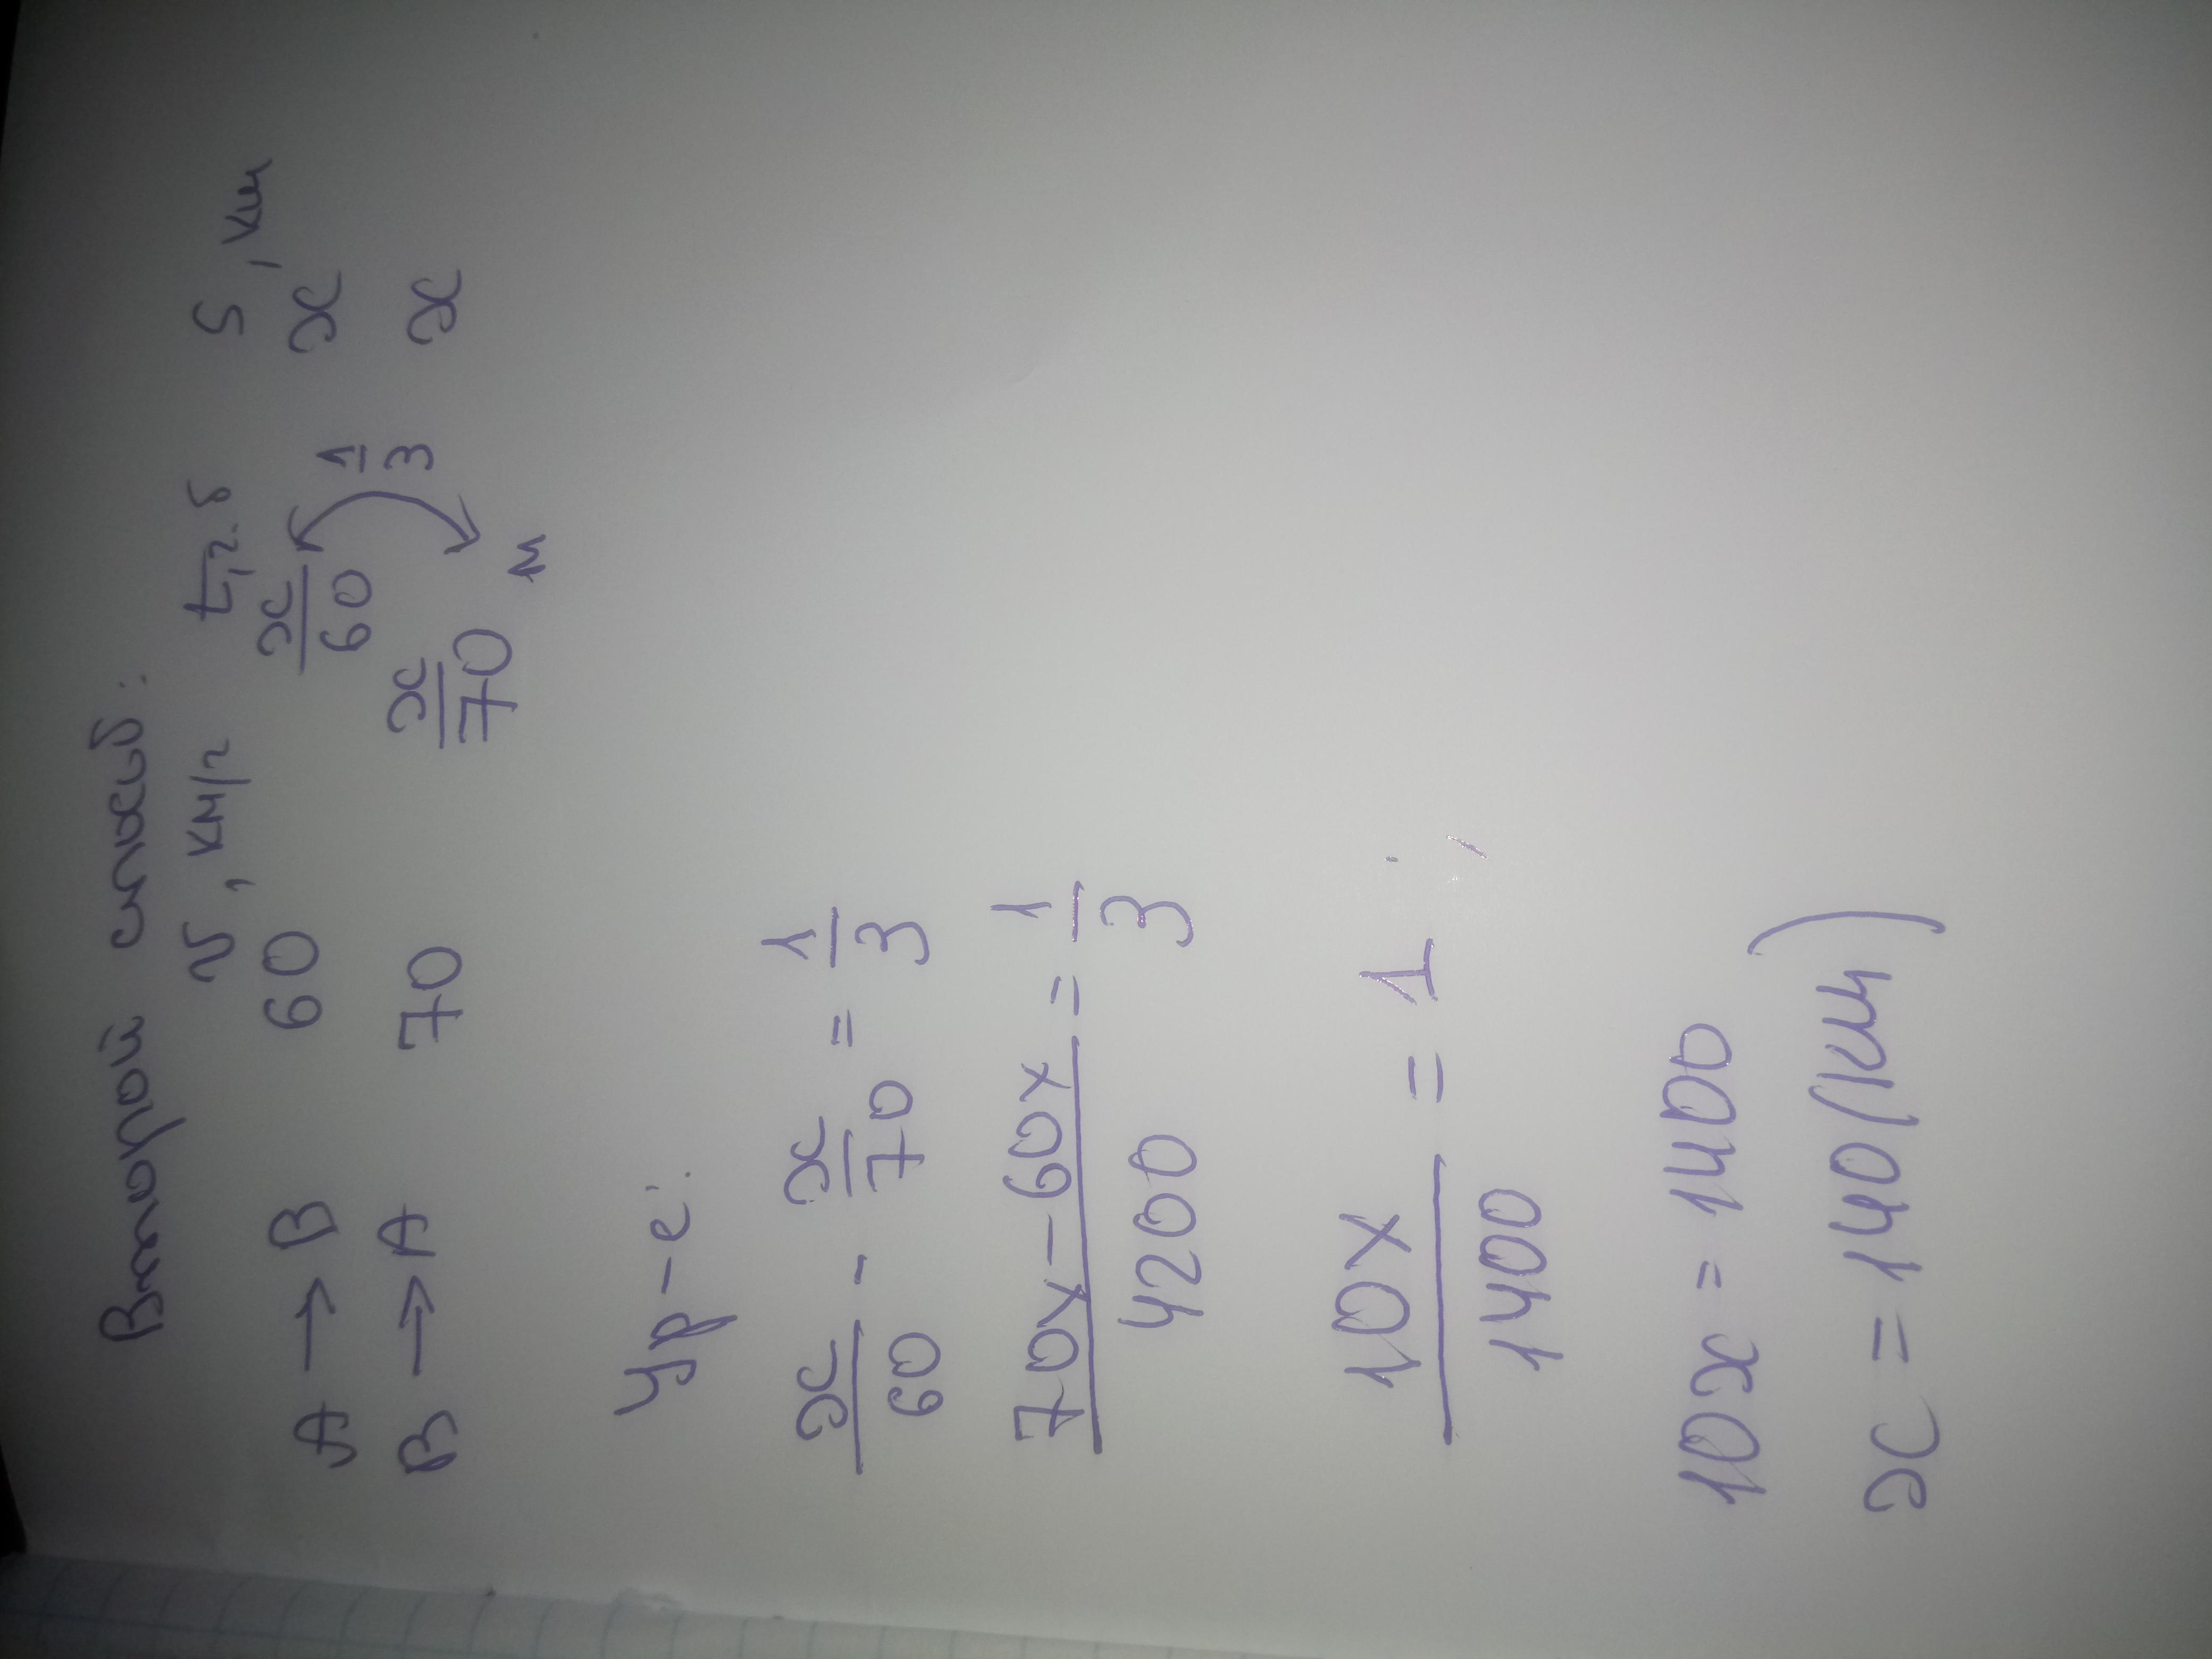 Второй способ:
v, км/ч t, ч S, км
A → B 60 x/60 1/3 x
B → A 70 x/70 м x
Ур-е:
x/60 - x/70 = 1/3
70x - 60x/4200 = 1/3
10x/1400 = 1
10x = 1400
x = 140 (км)